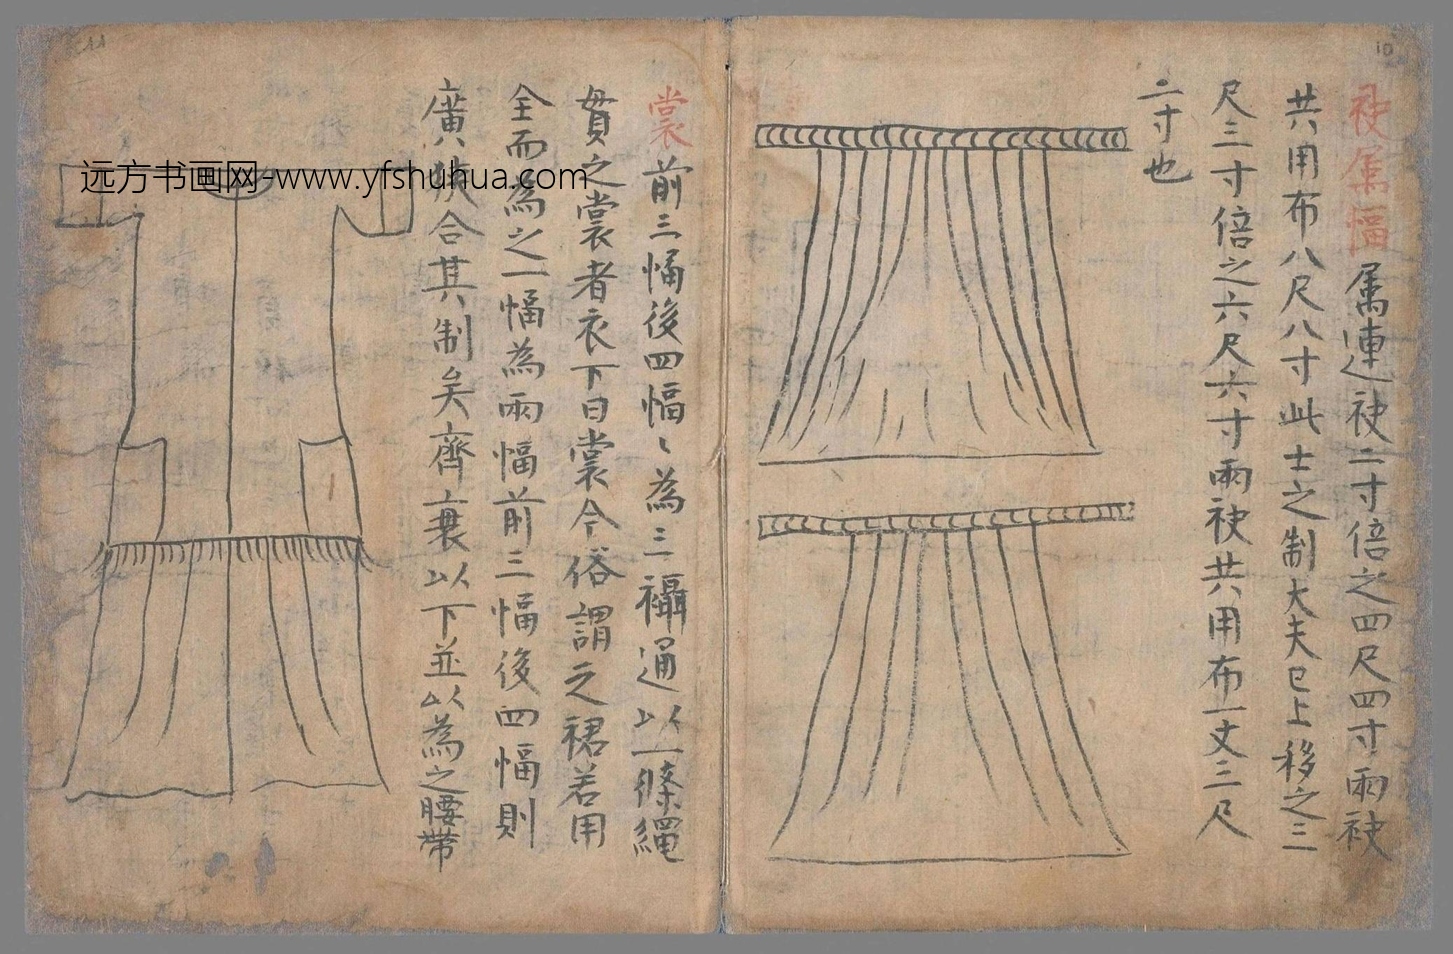 10
袂属幅 属連袂二寸倍之四尺四寸兩袂
共用布八尺八寸此士之制大夫已上移之三
尺三寸倍之六尺六寸兩袂共用布一丈三尺
二寸也
11
裳 前三幅後四幅〻為三襵通以一條繩
貫之裳者衣下曰裳今俗謂之裙若用
全而為之一幅為兩幅前三幅後四幅則
廣狹合其制矣齊衰以下並以為之腰帶
远方书画网-www.yfshuhua.com